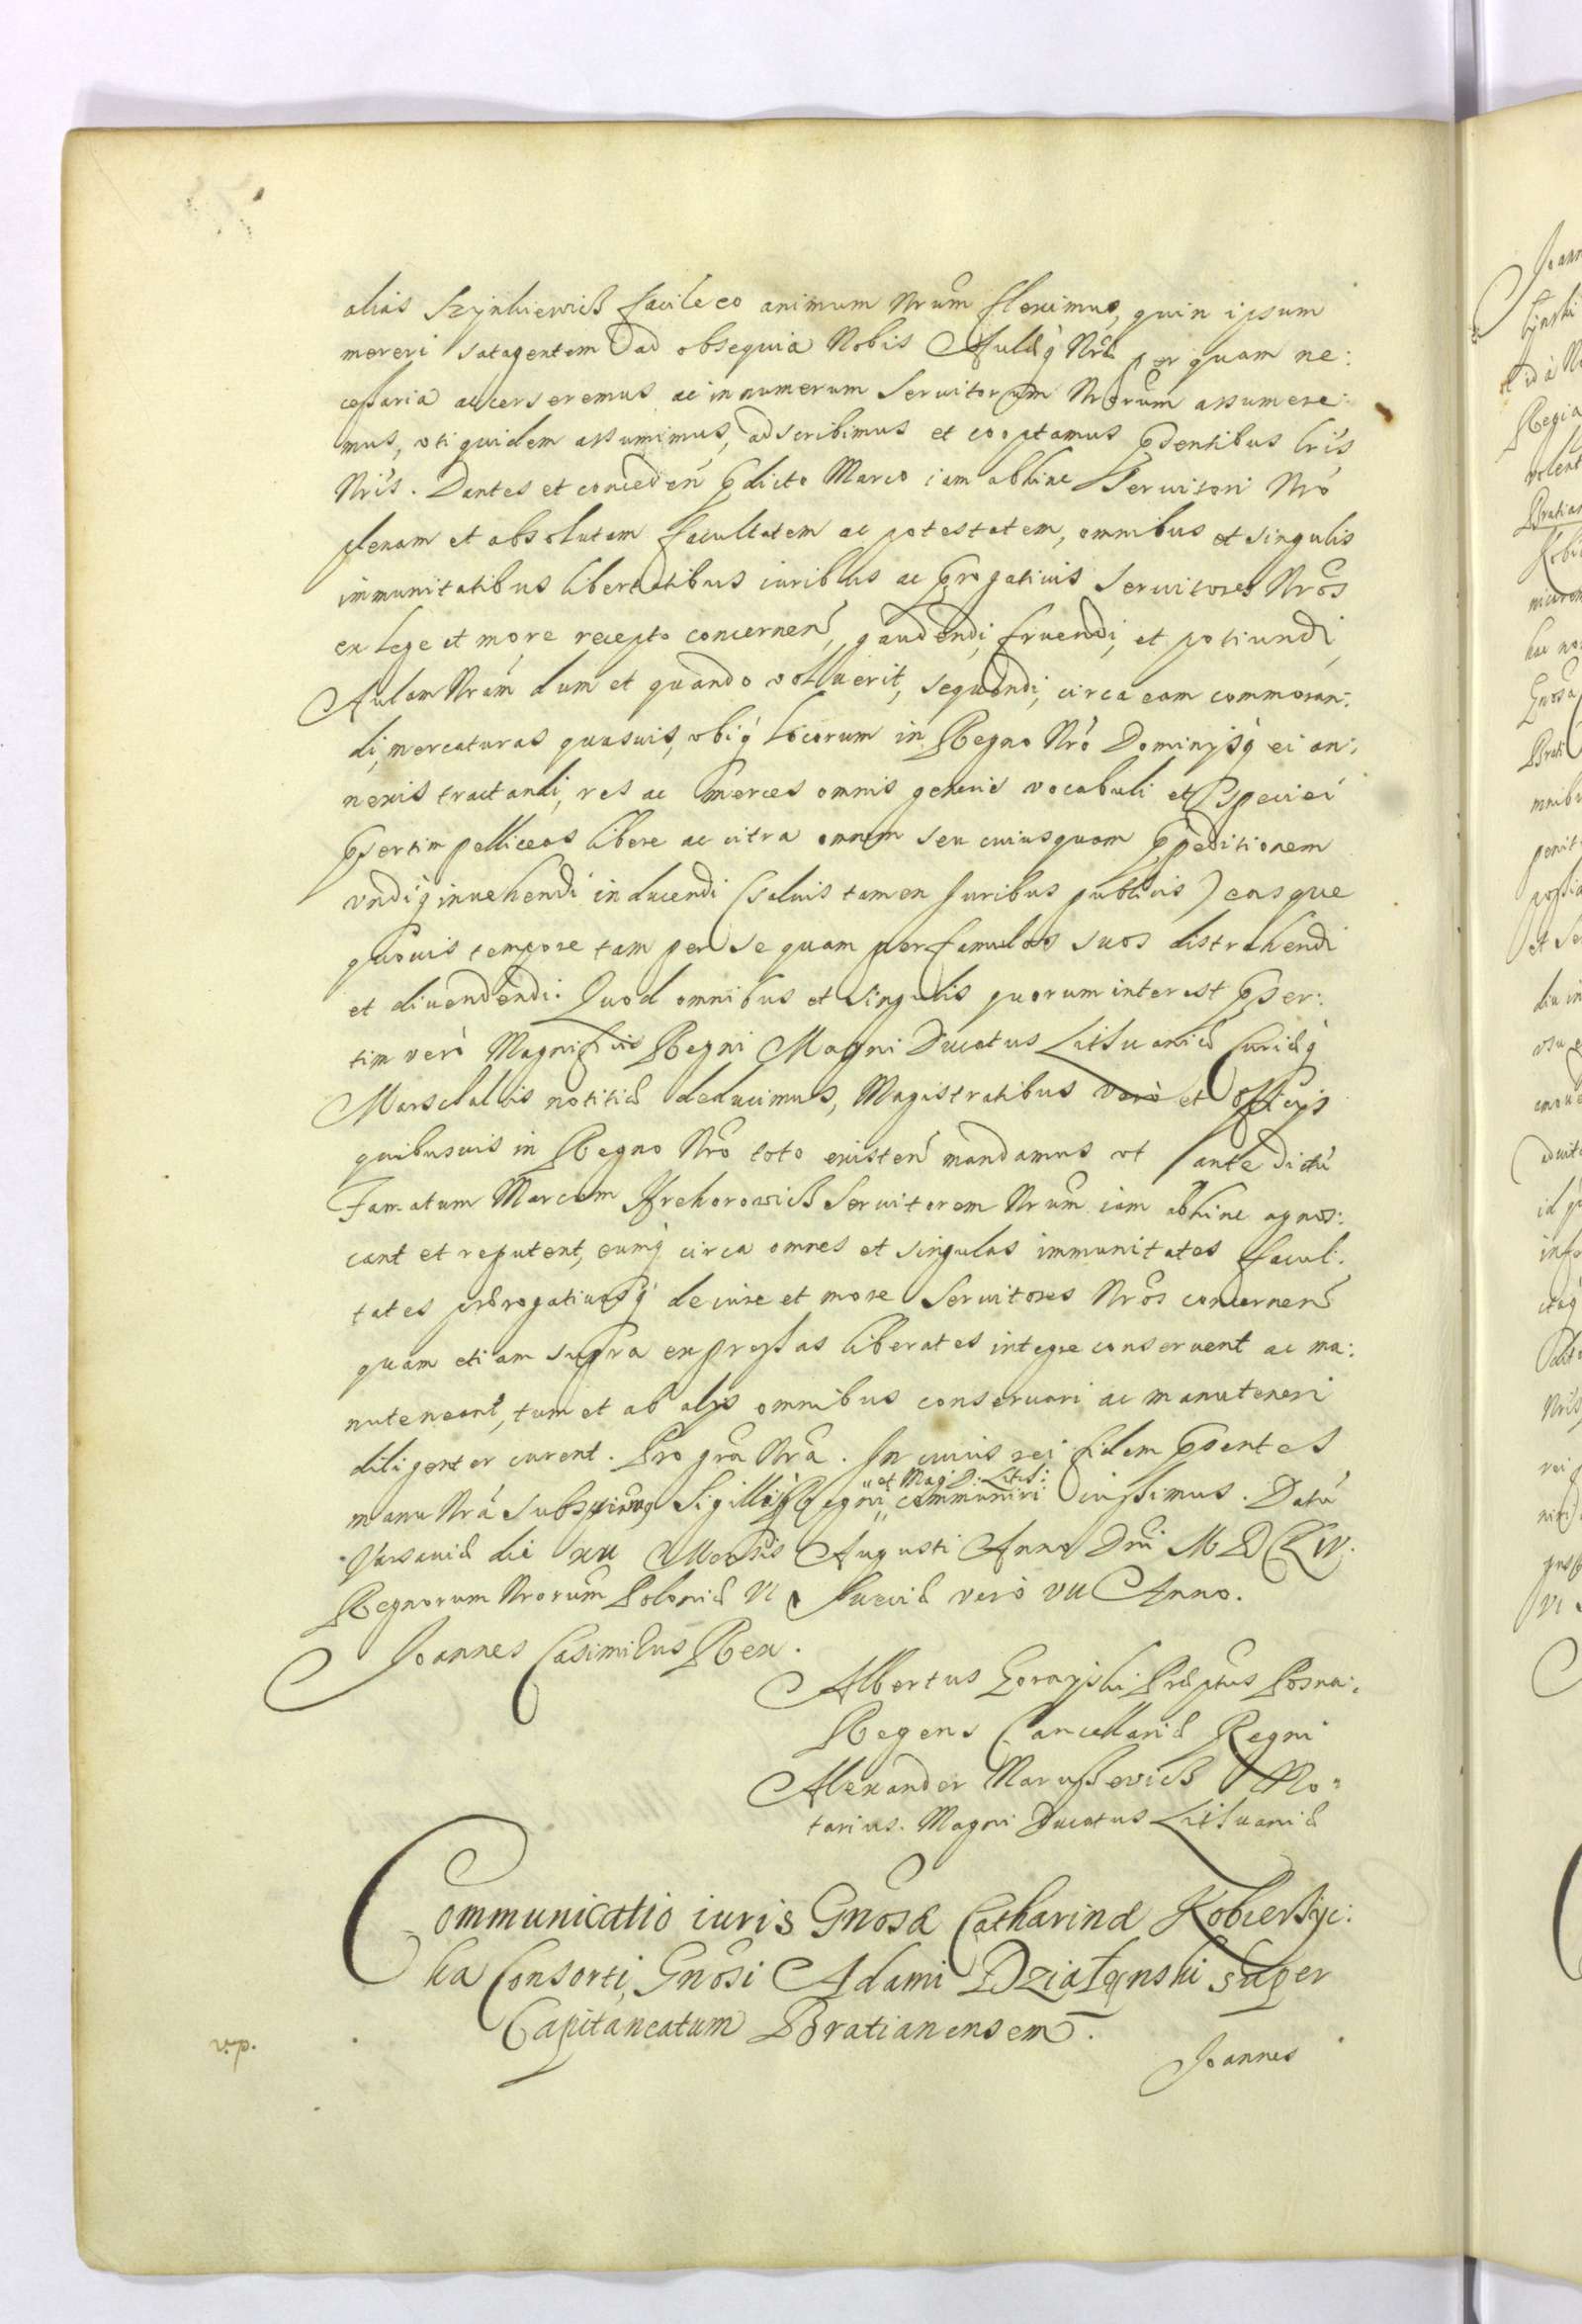 alias Szynkiewicz facile eo animum Nrum fleximus, quin ipsum
mereri satagentem ad obsequia Nobis Aulæq Nræ per quam ne:
cessaria accerseremus ac in numerum Seruitorum Nrorum assumere:
mus, vti quidem assumimus, adscribimus et cooptamus pntibus lris
Nris. Dantes et conceden pdicto Marco iam abhinc Seruitori Nro
plenam et absolutam facultatem ac potestatem, omnibus et singulis
immunitatibus libertatibus iuribus ac progatiuis Seruitores Nros
ex lege et more recepto concernen, gaudendi, fruendi, et potiundi,
Aulam Nram dum et quando voluerit, sequendi, circa eam commoran:
di, mercaturas quasuis, vbiq locorum in Regno Nro Dominysq ei an:
nexis tractandi, res ac merces omnis generis vocabuli et Speciei
psertim pelliceas libere ac citra omnem seu cuiusquam peditionem
vndiq inuehendi inducendi (saluis tamen Juribus publicis) easque
quouis tempore tam per se quam per famulos suos distrahendi
et diuendendi. Quod omnibus et singulis quorum interest pser:
tim verò Magnificis Regni Magni Ducatus Lithuaniæ Curiæq
Marschallis notitiæ deducimus, Magistratibus verò et Officys
quibusuis in Regno Nro toto existen mandamus vt ante dictũ
Famatum Marcum Hrehorowicz Seruitorem Nrum iam abhinc agnos:
cant et reputent, eumq circa omnes et singulas immunitates facul:
tates prærogatiuasq de iure et more Seruitores Nros concernen
quam etiam supra expressas liberates integre conseruent ac ma:
nuteneant, tum et ab alys omnibus conseruari ac manuteneri
diligenter curent. Pro gra Nra. In cuius rei fidem psentes
" et Mag: D: Lith:
manu Nra Subscriptas Sigillo Regni " communiri iussimus. Datũ
Varsauiæ die XII Mensis Augusti Anno Dni M D C LIV.
Regnorum Nrorum Poloniæ VI Sueciæ verò VII Anno.
Joannes Casimirus Rex.
Albertus Gorayski Præptus Posna:
Regens Cancellariæ Regni
Alexander Naruszewicz No:
tarius. Magni Ducatus Lithuaniæ
Communicatio iuris Gnosæ Catharinæ Kobierzyc:
ka Consorti, Gnosi Adami Działynski super
Capitaneatum Bratianensem.
Joannes